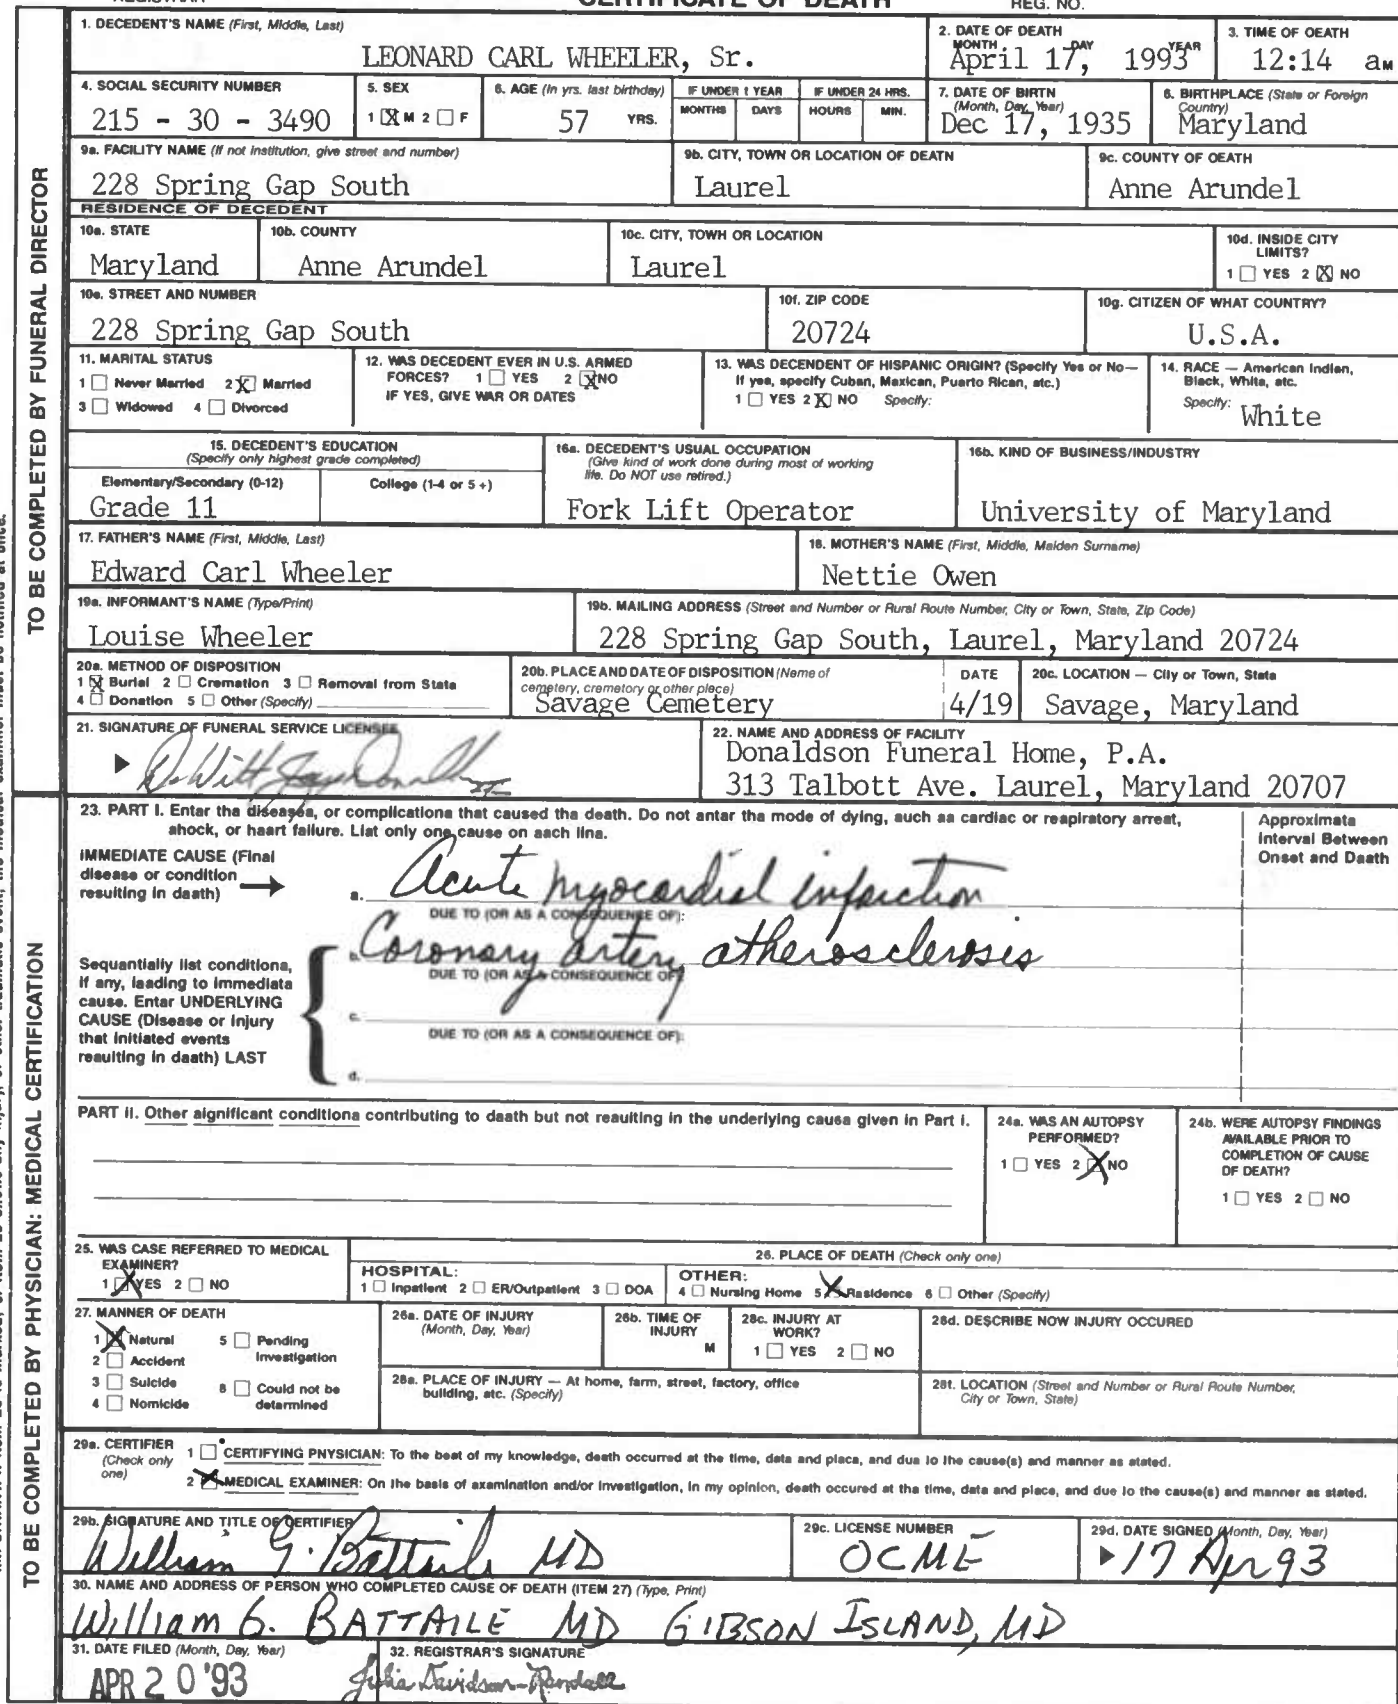 CERTIFICATE OF DEATH
REG. NO.
1. DECEDENT'S NAME (First, Middle, Last)
LEONARD CARL WHEELER, Sr.
2. DATE OF DEATH
MONTH DAY YEAR
April 17, 1993
3. TIME OF DEATH
12:14 aM
4. SOCIAL SECURITY NUMBER
215 - 30 - 3490
5. SEX
1 X M 2 F
6. AGE (In yrs. last birthday)
57 YRS.
IF UNDER 1 YEAR
MONTHS DAYS
IF UNDER 24 HRS.
HOURS MIN.
7. DATE OF BIRTH
(Month, Day, Year)
Dec 17, 1935
8. BIRTHPLACE (State or Foreign
Country)
Maryland
9a. FACILITY NAME (If not institution, give street and number)
228 Spring Gap South
9b. CITY, TOWN OR LOCATION OF DEATH
Laurel
9c. COUNTY OF DEATH
Anne Arundel
RESIDENCE OF DECEDENT
10a. STATE
Maryland
10b. COUNTY
Anne Arundel
10c. CITY, TOWN OR LOCATION
Laurel
10d. INSIDE CITY
LIMITS?
1 YES 2 X NO
10e. STREET AND NUMBER
228 Spring Gap South
10f. ZIP CODE
20724
10g. CITIZEN OF WHAT COUNTRY?
U.S.A.
11. MARITAL STATUS
1 Never Married 2 X Married
3 Widowed 4 Divorced
12. WAS DECEDENT EVER IN U.S. ARMED
FORCES? 1 YES 2 X NO
IF YES, GIVE WAR OR DATES
13. WAS DECENDENT OF HISPANIC ORIGIN? (Specify Yes or No—
If yes, specify Cuban, Mexican, Puerto Rican, etc.)
1 YES 2 X NO Specify:
14. RACE — American Indian,
Black, White, etc.
Specify: White
15. DECEDENT'S EDUCATION
(Specify only highest grade completed)
Elementary/Secondary (0-12) College (1-4 or 5+)
Grade 11
16a. DECEDENT'S USUAL OCCUPATION
(Give kind of work done during most of working
life. Do NOT use retired.)
Fork Lift Operator
16b. KIND OF BUSINESS/INDUSTRY
University of Maryland
17. FATHER'S NAME (First, Middle, Last)
Edward Carl Wheeler
18. MOTHER'S NAME (First, Middle, Maiden Surname)
Nettie Owen
19a. INFORMANT'S NAME (Type/Print)
Louise Wheeler
19b. MAILING ADDRESS (Street and Number or Rural Route Number, City or Town, State, Zip Code)
228 Spring Gap South, Laurel, Maryland 20724
20a. METHOD OF DISPOSITION
1 X Burial 2 Cremation 3 Removal from State
4 Donation 5 Other (Specify)
20b. PLACE AND DATE OF DISPOSITION (Name of
cemetery, crematory or other place)
Savage Cemetery
DATE
4/19
20c. LOCATION — City or Town, State
Savage, Maryland
21. SIGNATURE OF FUNERAL SERVICE LICENSEE
22. NAME AND ADDRESS OF FACILITY
Donaldson Funeral Home, P.A.
313 Talbott Ave. Laurel, Maryland 20707
TO BE COMPLETED BY FUNERAL DIRECTOR
23. PART I. Enter the diseases, or complications that caused the death. Do not enter the mode of dying, such as cardiac or respiratory arrest,
shock, or heart failure. List only one cause on each line.
Approximate
Interval Between
Onset and Death
IMMEDIATE CAUSE (Final
disease or condition
resulting in death) →
a. Acute myocardial infarction
DUE TO (OR AS A CONSEQUENCE OF):
b. Coronary artery atherosclerosis
DUE TO (OR AS A CONSEQUENCE OF):
Sequentially list conditions,
if any, leading to immediate
cause. Enter UNDERLYING
CAUSE (Disease or injury
that initiated events
resulting in death) LAST
c.
DUE TO (OR AS A CONSEQUENCE OF):
d.
PART II. Other significant conditions contributing to death but not resulting in the underlying cause given in Part I.
24a. WAS AN AUTOPSY
PERFORMED?
1 YES 2 X NO
24b. WERE AUTOPSY FINDINGS
AVAILABLE PRIOR TO
COMPLETION OF CAUSE
OF DEATH?
1 YES 2 NO
25. WAS CASE REFERRED TO MEDICAL
EXAMINER?
1 X YES 2 NO
26. PLACE OF DEATH (Check only one)
HOSPITAL:
1 Inpatient 2 ER/Outpatient 3 DOA
OTHER:
4 Nursing Home 5 X Residence 6 Other (Specify)
27. MANNER OF DEATH
1 X Natural 5 Pending
Investigation
2 Accident
3 Suicide 8 Could not be
determined
4 Homicide
28a. DATE OF INJURY
(Month, Day, Year)
28b. TIME OF
INJURY
M
28c. INJURY AT
WORK?
1 YES 2 NO
28d. DESCRIBE HOW INJURY OCCURED
28e. PLACE OF INJURY — At home, farm, street, factory, office
building, etc. (Specify)
28f. LOCATION (Street and Number or Rural Route Number,
City or Town, State)
29a. CERTIFIER
(Check only
one)
1 CERTIFYING PHYSICIAN: To the best of my knowledge, death occurred at the time, date and place, and due to the cause(s) and manner as stated.
2 X MEDICAL EXAMINER: On the basis of examination and/or investigation, in my opinion, death occured at the time, date and place, and due to the cause(s) and manner as stated.
29b. SIGNATURE AND TITLE OF CERTIFIER
William G. Battaile MD
29c. LICENSE NUMBER
OCME
29d. DATE SIGNED (Month, Day, Year)
17 Apr 93
30. NAME AND ADDRESS OF PERSON WHO COMPLETED CAUSE OF DEATH (ITEM 27) (Type, Print)
William G. BATTAILE MD GIBSON ISLAND, MD
31. DATE FILED (Month, Day, Year)
APR 20 '93
32. REGISTRAR'S SIGNATURE
Julia Davidson-Randall
TO BE COMPLETED BY PHYSICIAN: MEDICAL CERTIFICATION